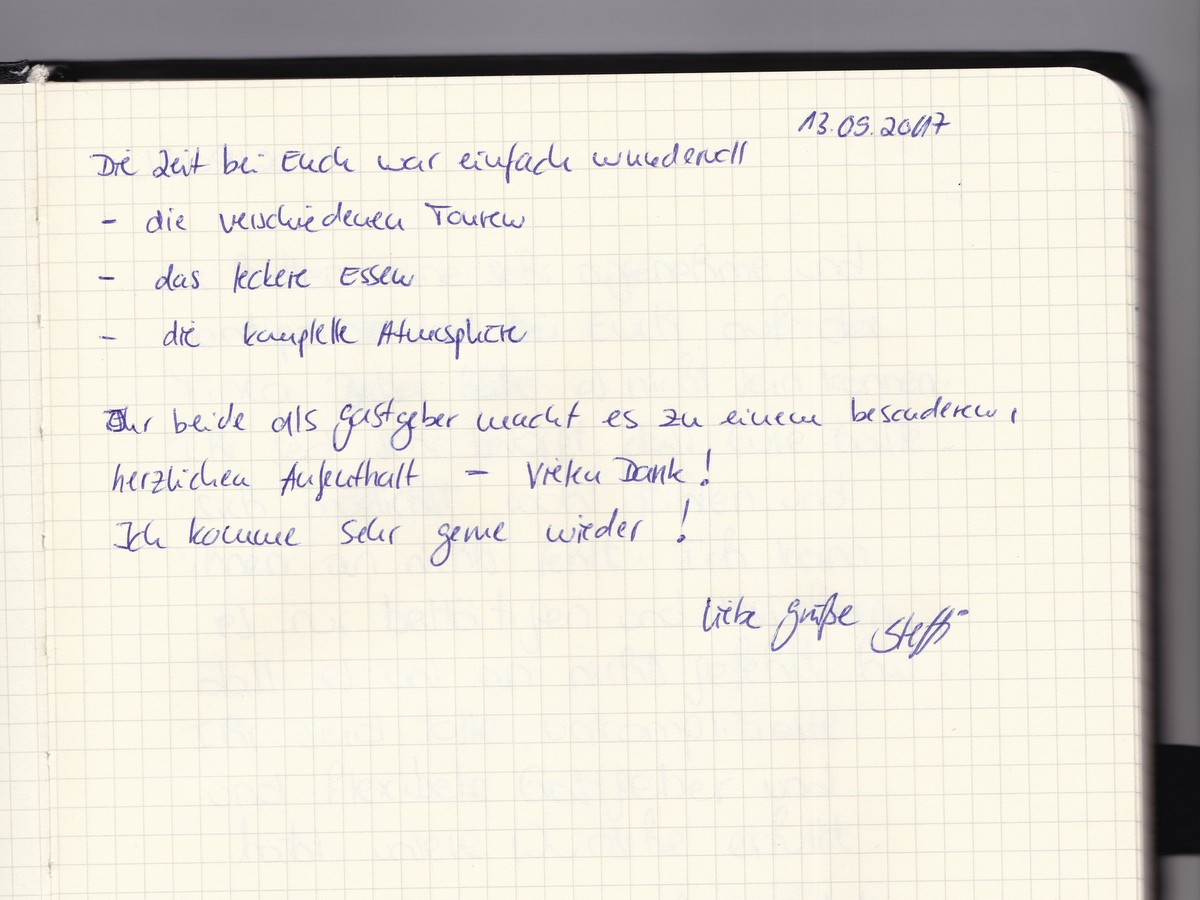 13.09.2017
Die Zeit bei Euch war einfach wundervoll
- die verschiedenen Touren
- das leckere Essen
- die komplette Atmosphäre
Ihr beide als Gastgeber macht es zu einem besonderen,
herzlichen Aufenthalt - Vielen Dank!
Ich komme sehr gerne wieder!
Liebe Grüße Steffi